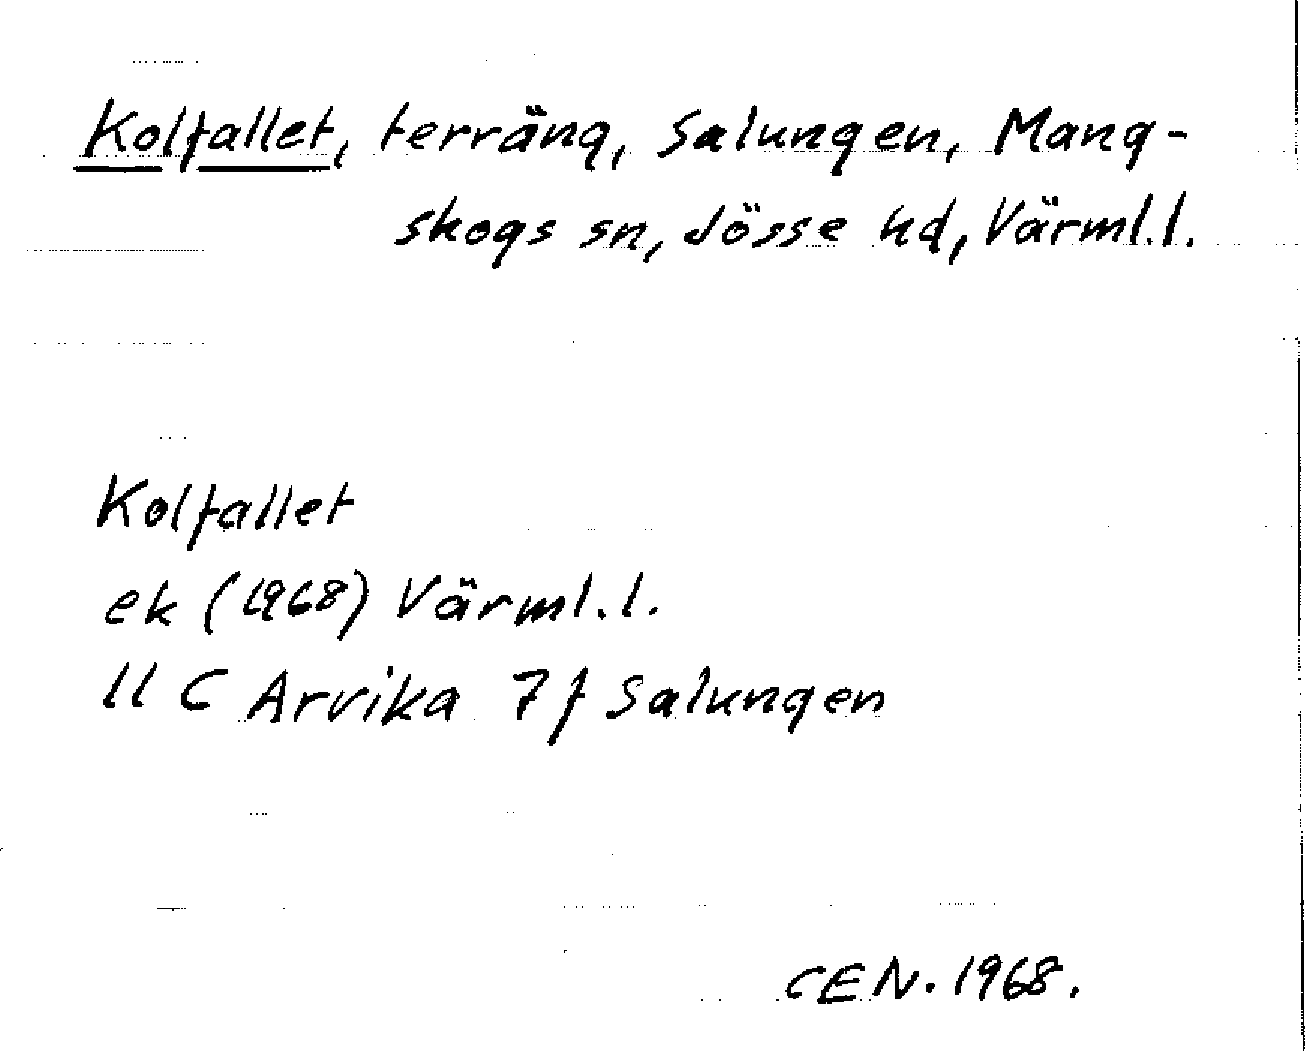 Kolfallet, terräng, Salungen, Mang-
skogs sn, Jösse hd, Värml.l.
Kolfallet
ek (1968) Värml.l.
11 C Arvika 7f Salungen
CEN. 1968.